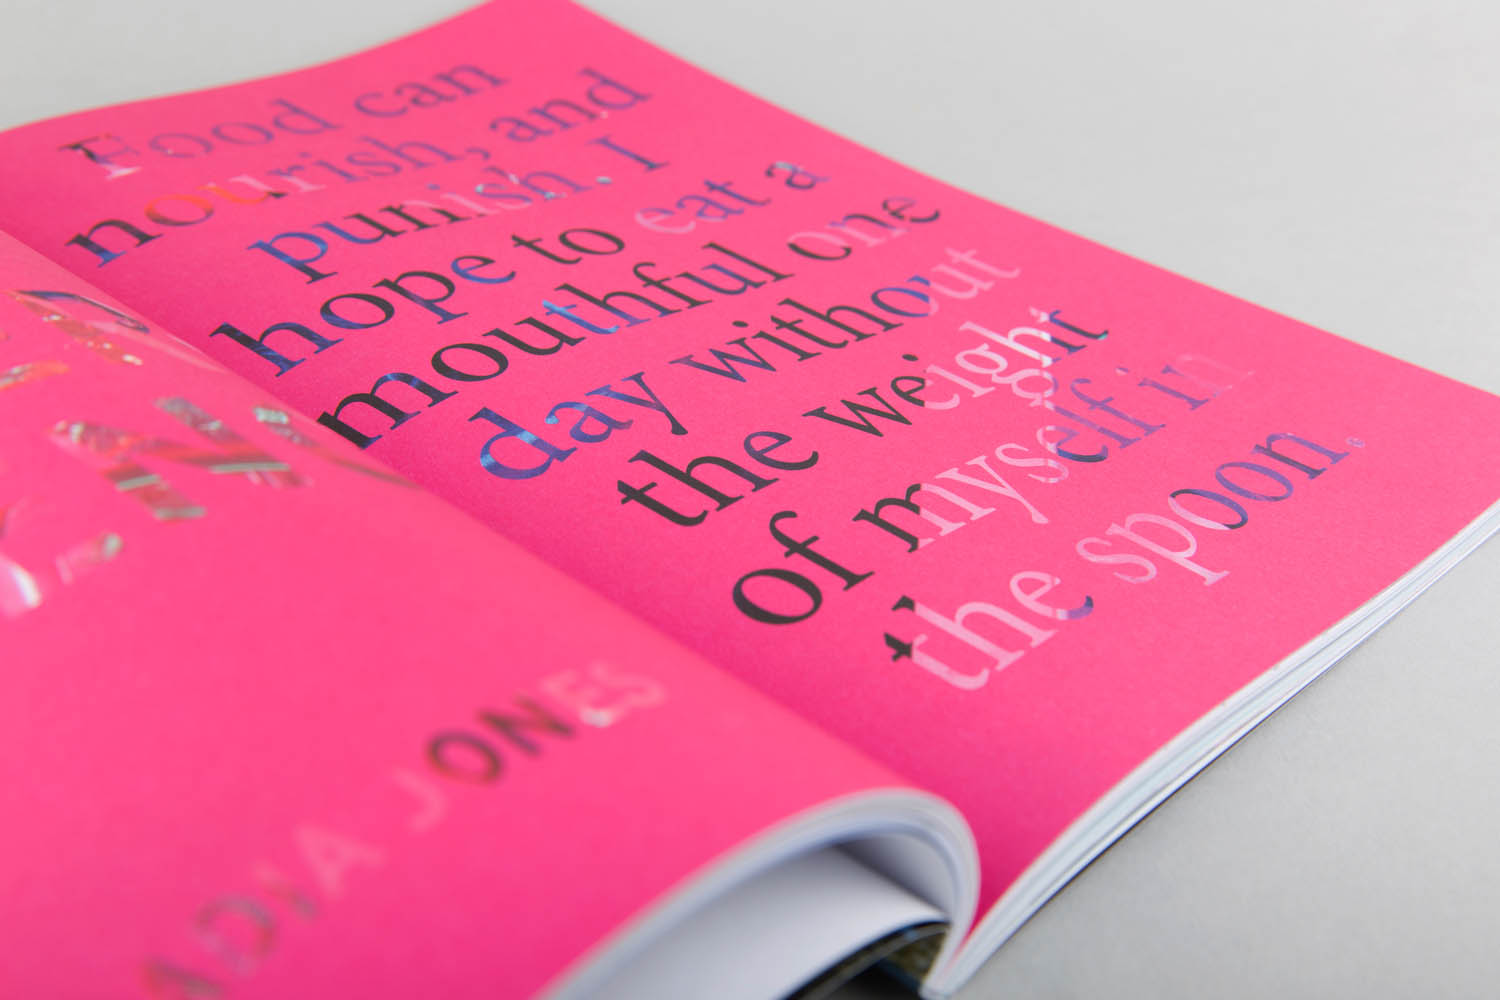 JONES
Food can
nourish, and
punish. I
hope to eat a
mouthful one
day without
the weight
of myself in
the spoon.